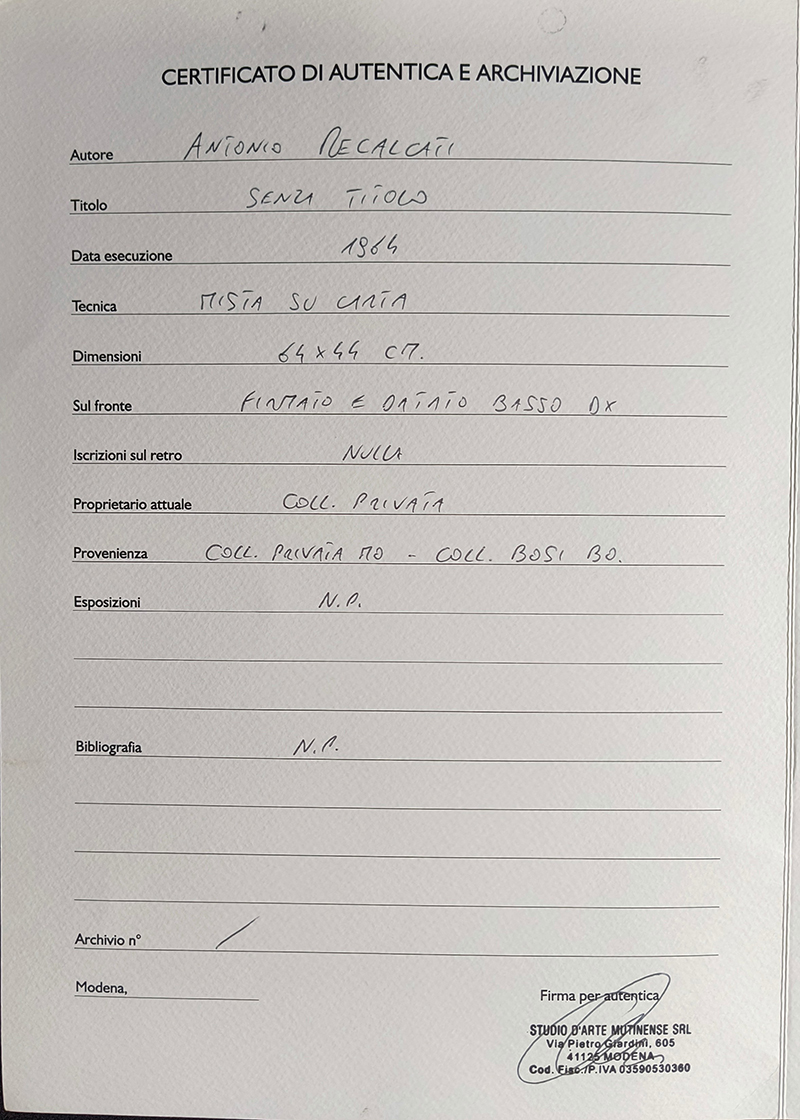 CERTIFICATO DI AUTENTICA E ARCHIVIAZIONE
Autore ANTONIO RECALCATI
Titolo SENZA TITOLO
Data esecuzione 1964
Tecnica MISTA SU CARTA
Dimensioni 64x44 CM.
Sul fronte FIRMATO E DATATO BASSO DX
Iscrizioni sul retro NULLA
Proprietario attuale COLL. PRIVATA
Provenienza COLL. PRIVATA MO - COLL. BOSI BO.
Esposizioni N.P.
Bibliografia N.P.
Archivio n° /
Modena,
Firma per autentica
STUDIO D'ARTE MUTINENSE SRL
Via Pietro Giardini, 605
41125 MODENA
Cod. Fisc./P.IVA 03590530360